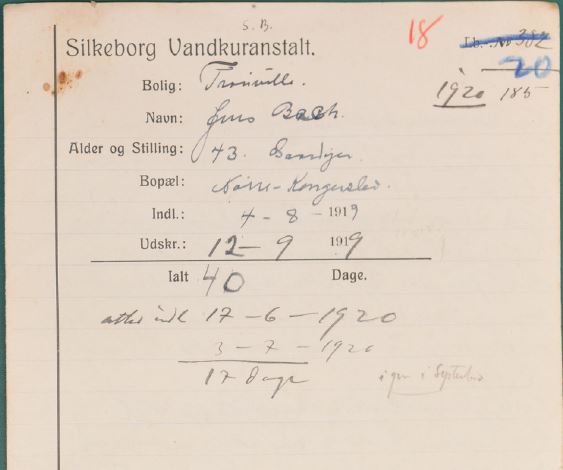 S. B.
18
Lb.-№ 382
20
Silkeborg Vandkuranstalt.
1920 185
Bolig: Trouville.
Navn: Jens Bach.
Alder og Stilling: 43. Gaardejer.
Bopæl: Nørre-Kongerslev.
Indl.: 4 - 8 - 1919
Udskr.: 12 - 9 1919
Ialt 40 Dage.
atter indl 17 - 6 - 1920
3 - 7 - 1920
17 Dage
igen i September